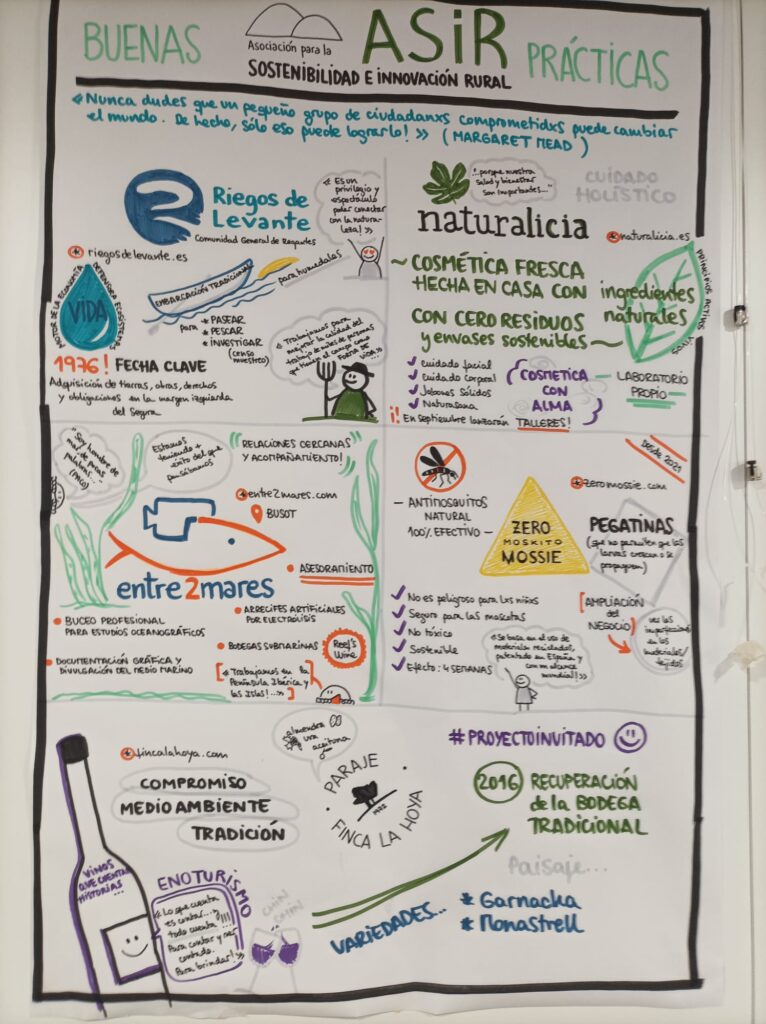 BUENAS
Asociación para la
ASiR
SOSTENIBILIDAD E INNOVACIÓN RURAL
PRÁCTICAS
«Nunca dudes que un pequeño grupo de ciudadanxs comprometidxs puede cambiar
el mundo. De hecho, sólo eso puede lograrlo!» (MARGARET MEAD)
Riegos de
Levante
Comunidad General de Regantes
«Es un
privilegio y
espectáculo
poder conectar
con la natura-
leza!»
riegosdelevante.es
MOTOR DE LA ECONOMÍA
DEFENSORA ECOSISTEMA
VIDA
EMBARCACIÓN TRADICIONAL
para humedales
para
* PASEAR
* PESCAR
* INVESTIGAR
(censo
muestreo)
«Trabajamos para
mejorar la calidad del
trabajo de miles de personas
que tienen el campo como
FORMA DE
VIDA»
1976! FECHA CLAVE
Adquisición de tierras, obras, derechos
y obligaciones en la margen izquierda
del Segura
"porque nuestra
salud y bienestar
son importantes..."
CUIDADO
HOLÍSTICO
naturalicia
naturalicia.es
~ COSMÉTICA FRESCA
HECHA EN CASA CON
ingredientes
naturales
CON CERO RESIDUOS
y envases sostenibles ~
PRINCIPIOS ACTIVOS VIVOS
✓ Cuidado facial
✓ Cuidado corporal
✓ Jabones sólidos
✓ Naturasana
COSMÉTICA
CON
ALMA
LABORATORIO
PROPIO
¡! En septiembre lanzarán TALLERES!
"Soy hombre de
mar, de pocas
palabras..."
(PACO)
Estamos
teniendo +
éxito del que
pensábamos
RELACIONES CERCANAS
Y ACOMPAÑAMIENTO!
entre2mares.com
BUSOT
entre2mares
• ASESORAMIENTO
• BUCEO PROFESIONAL
PARA ESTUDIOS OCEANOGRÁFICOS
• ARRECIFES ARTIFICIALES
POR ELECTROLISIS
• BODEGAS SUBMARINAS
Reef's
Wine
• DOCUMENTACIÓN GRÁFICA Y
DIVULGACIÓN DEL MEDIO MARINO
[«Trabajamos en la
Península Ibérica y
las Islas!...»]
DESDE 2021
zeromossie.com
— ANTIMOSQUITOS
NATURAL
100% EFECTIVO —
ZERO
MOSKITO
MOSSIE
PEGATINAS
(que no permiten que las
larvas crezcan o se
propaguen)
✓ No es peligroso para lxs niñxs
✓ Seguro para las mascotas
✓ No tóxico
✓ Sostenible
✓ Efecto: 4 SEMANAS
[AMPLIACIÓN
DEL
NEGOCIO]
ver las
imperfecciones
en los
materiales/
tejidos
«Se basa en el uso de
materiales reciclados,
patentado en España y
con un alcance
mundial!»
fincalahoya.com
almendra
uva
aceituna
#PROYECTOINVITADO
COMPROMISO
MEDIO AMBIENTE
TRADICIÓN
PARAJE
FINCA LA HOYA
2016 RECUPERACIÓN
de la BODEGA
TRADICIONAL
Paisaje...
VINOS
QUE CUENTAN
HISTORIAS
...
ENOTURISMO
«Lo que cuenta
es contar...
todo cuenta!!!!
Para contar y ser
contado.
Para brindar!»
CHIN
CHIN
VARIEDADES...
* Garnacha
* Monastrell